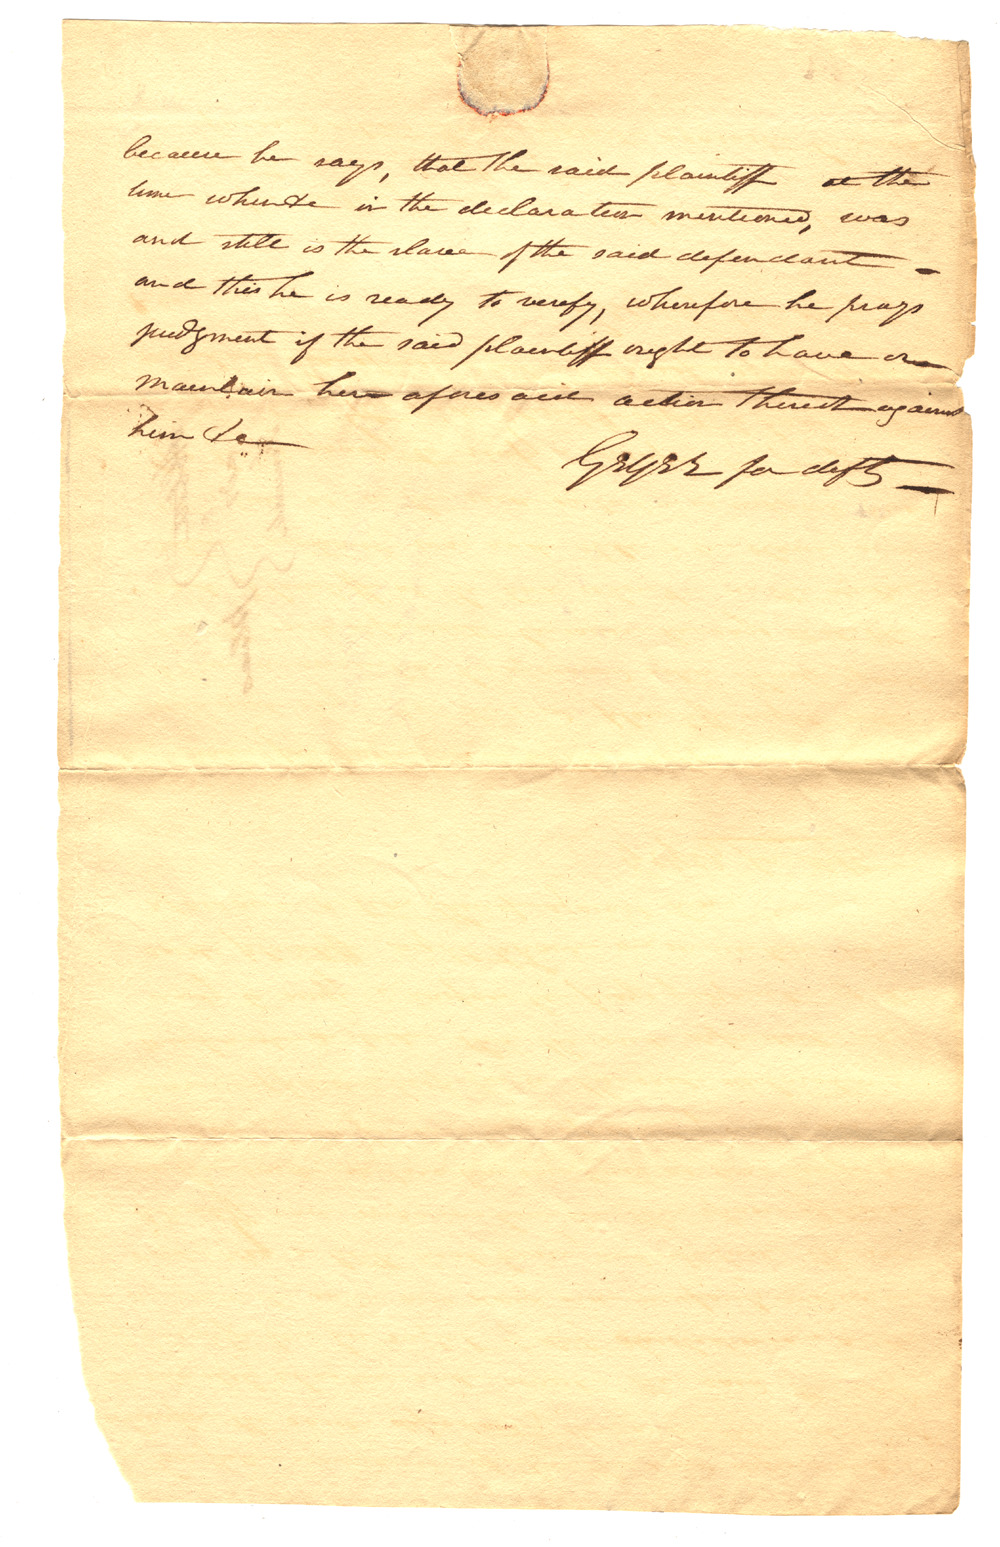 because he says, that the said plaintiff at the
time when &c in the declaration mentioned, was
and still is the slave of the said defendant —
and this he is ready to verify, wherefore he prays
judgment if the said plaintiff ought to have or
maintain her aforesaid action thereof against
him &c —
GEYER for deft —